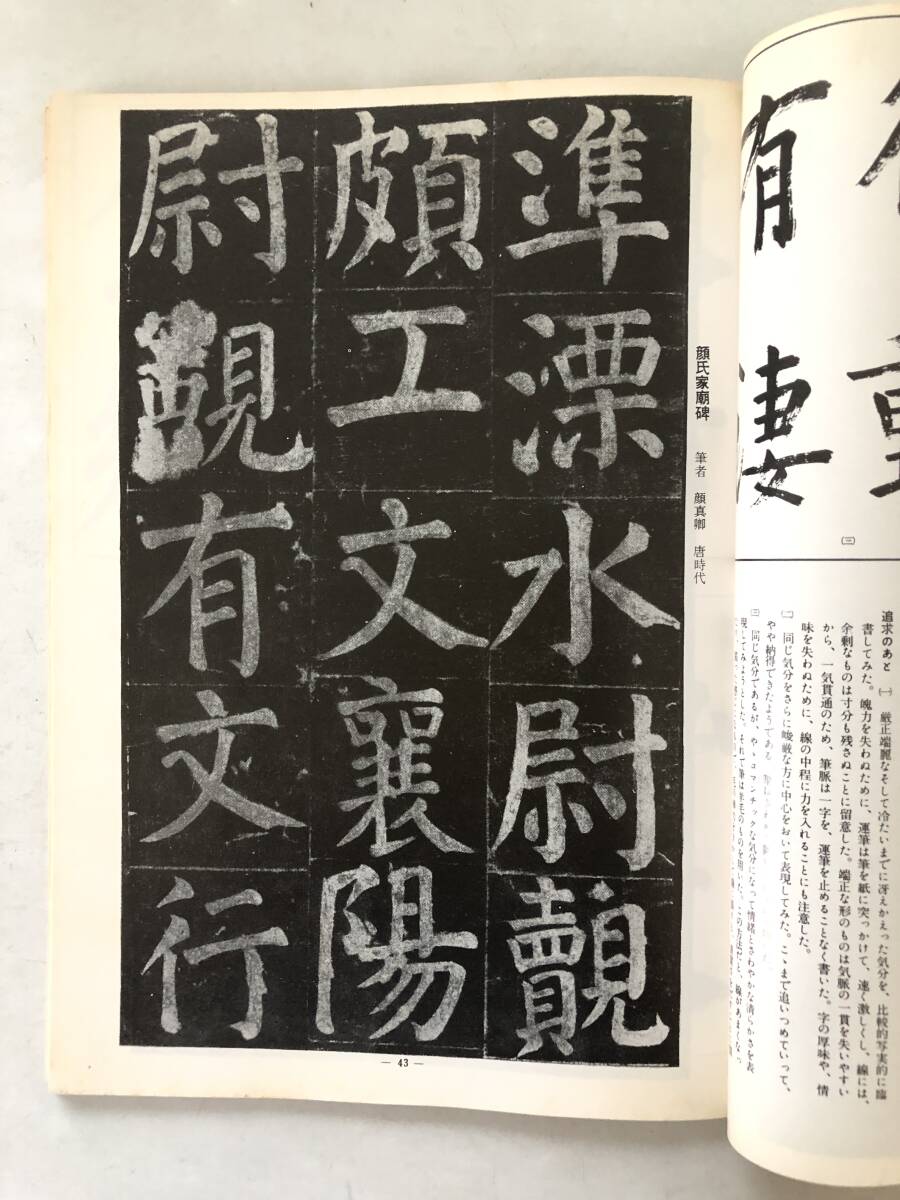 有凄
㈢
追求のあと ㈠ 厳正端麗なそして冷たいまでに冴えかえった気分を、比較的写実的に臨
書してみた。魄力を失わぬために、運筆は筆を紙に突っかけて、速く激しくし、線には、
余剰なものは寸分も残さぬことに留意した。端正な形のものは気脈の一貫を失いやすい
から、一気貫通のため、筆脈は一字を、運筆を止めることなく書いた。字の厚味や、情
味を失わぬために、線の中程に力を入れることにも注意した。
㈡ 同じ気分をさらに峻厳な方に中心をおいて表現してみた。こゝまで追いつめていって、
やや納得できたようである
㈢ 同じ気分であるが、やゝロマンチックな気分になって情緒とさわやかな清らかさを表
現してみようとした。それで筆は羊毛のものを用いた。この方法だと、線があまくなっ
顔氏家廟碑 筆者 顔真卿 唐時代
準溧水尉覿
頗工文襄陽
尉有文行
— 43 —